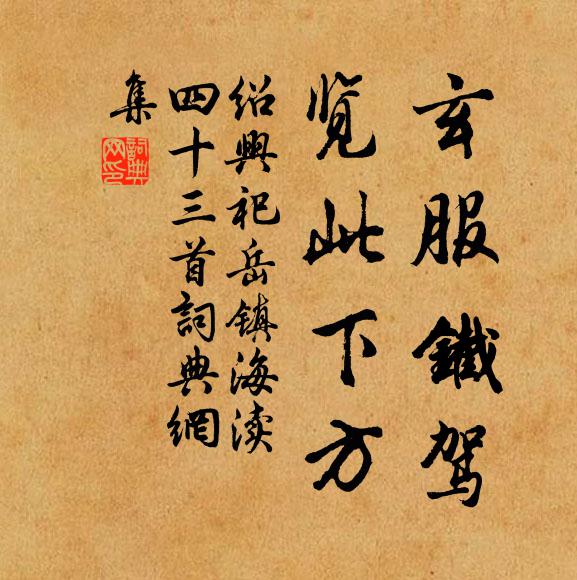 玄服鐵驾
览此下方
绍興祀岳镇海渎
四十三首詞典網
集
詞典
网印